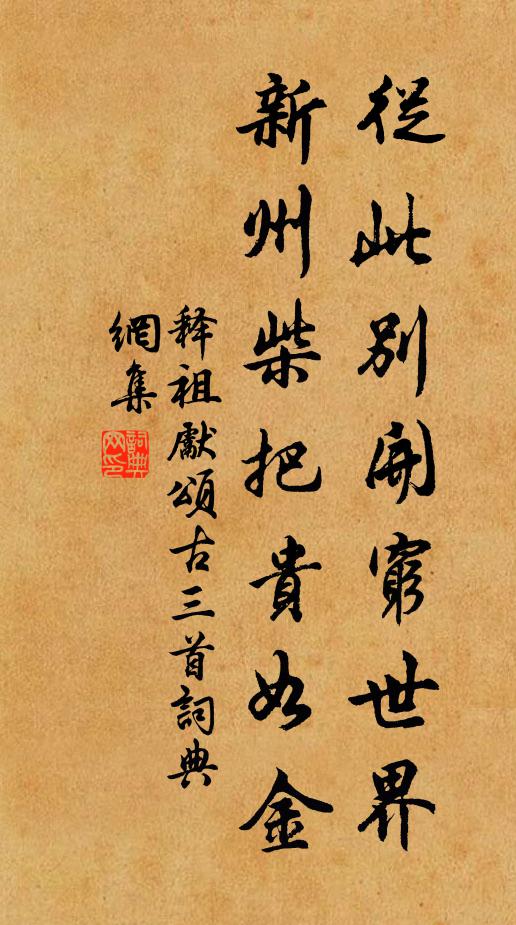 從此別開窮世界
新州柴把貴如金
释祖獻頌古三首詞典
網集
詞典
网印